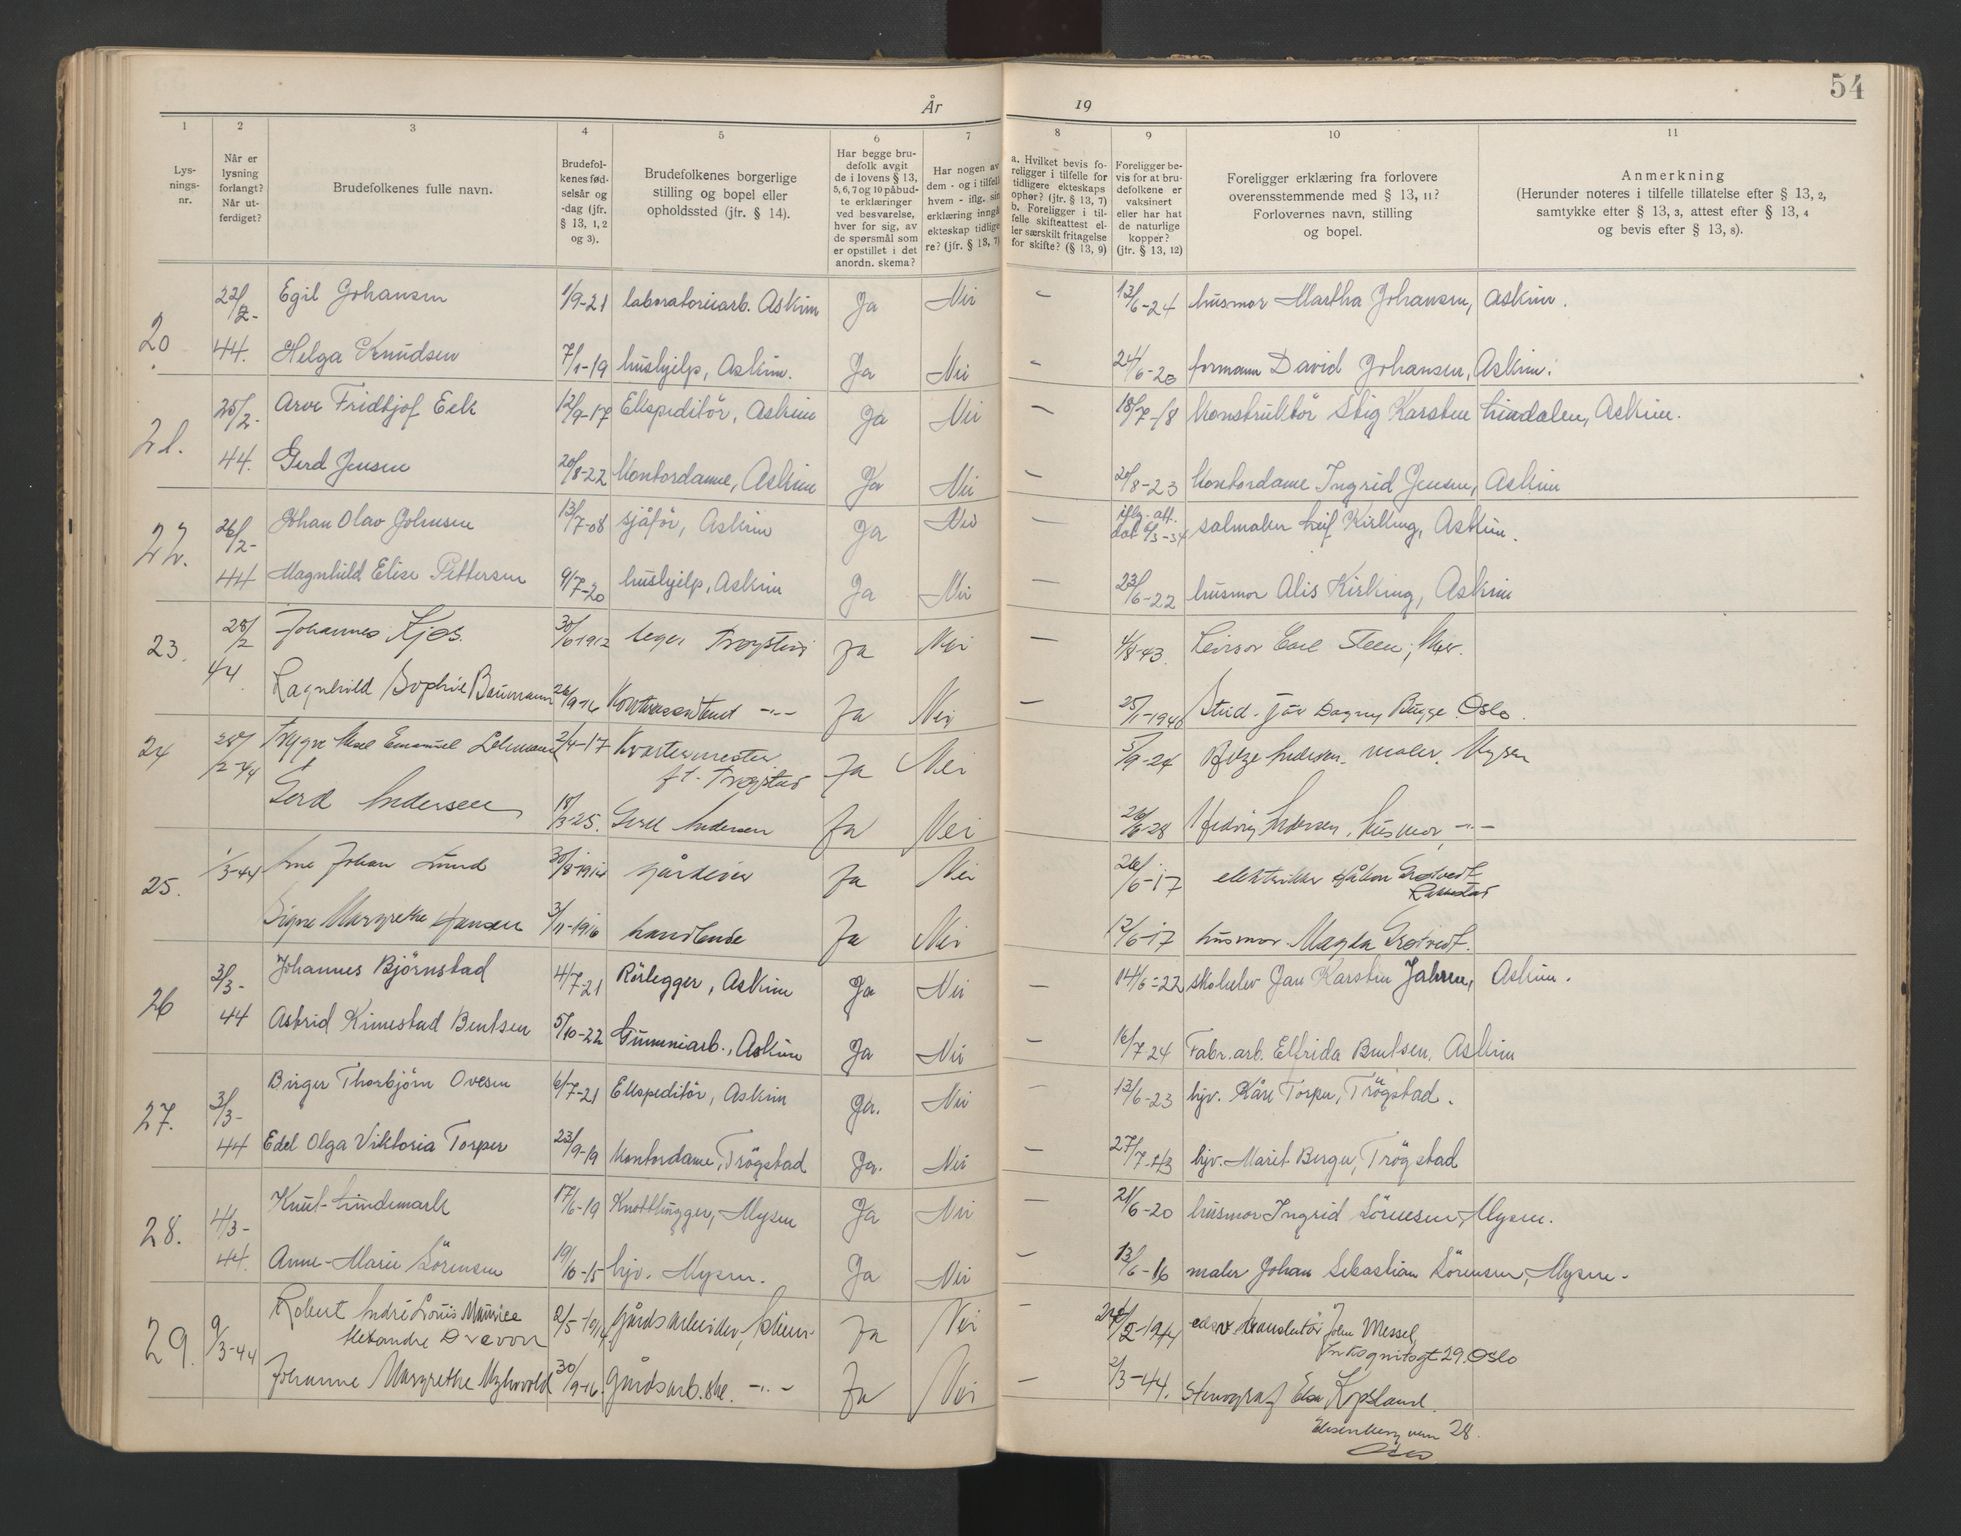 54
År 19
1 2 3 4 5 6 7 8 9 10 11
Lys-
nings-
nr.
Når er
lysning
forlangt?
Når ut-
ferdiget?
Brudefolkenes fulle navn.
Brudefol-
kenes fød-
selsår og
-dag (jfr.
§ 13, 1, 2
og 3).
Brudefolkenes borgerlige
stilling og bopel eller
opholdssted (jfr. § 14).
Har begge bru-
defolk avgit
de i lovens § 13,
5, 6, 7 og 10 påbud-
te erklæringer
ved besvarelse,
hver for sig, av
de spørsmål som
er opstillet i det
anordn. skema?
Har nogen av
dem - og i tilfelle
hvem - iflg. sin
erklæring inngå
ekteskap tidlige
re? (jfr. § 13, 7)
a. Hvilket bevis fo-
religger i tilfelle for
tidligere ekteskaps
ophør? (jfr. § 13, 7)
b. Foreligger i til-
felle skifteattest el-
ler særskilt fritagelse
for skifte? (§ 13, 9)
Foreligger be-
vis for at bru-
defolkene er
vaksinert
eller har hat
de naturlige
kopper?
(jfr. § 13, 12)
Foreligger erklæring fra forlovere
overensstemmende med § 13, 11?
Forlovernes navn, stilling
og bopel.
Anmerkning
(Herunder noteres i tilfelle tillatelse efter § 13, 2,
samtykke etter § 13, 3, attest efter § 13, 4
og bevis efter § 13, 8).
20. 22/2- Egil Johansen 1/9-21 laboratoriearb. Askim Ja Nei - 13/6-24 husmor Martha Johansen, Askim.
44. Helga Knudsen 7/1-19 hushjelp, Askim. Ja Nei - 24/6-20 formann David Johansen, Askim.
21. 25/2- Arve Fridtjof Eek 12/9-17 Ekspeditör, Askim Ja Nei - 18/7-18 Konstruktör Stig Karsten Lindalen, Askim.
44. Gerd Jensen 20/8-22 Kontordame, Askim Ja Nei - 20/8-23 Kontordame Ingrid Jensen, Askim
22. 26/2- Johan Olav Johnsen 13/7-08 sjåför, Askim Ja Nei - iflg. att. dat 6/3-34 salmaker Leif Kirking, Askim.
44 Magnhild Elise Pettersen 9/7-20 hushjelp, Askim Ja Nei - 23/6-22 husmor Alis Kirking, Askim
23. 28/2 Johannes Kjos 30/6 1912 Trøgstad Ja Nei - 4/8-43. Carl Steen,
44. Ragnhild Sophie Baumann 26/9-16 -"- Ja Nei - 25/1-1940 Stud. Dagny Bugge Oslo.
24 28/2-44 Trygve Emanuel Lehmann 2/4-17 Kvartermester Ja Nei 5/9-24 Andersen. maler. Mysen
f.t. Trøgstad
Gerd Andersen 18/3-25. Gerd Andersen Ja Nei 26/6-28 Hedvig Andersen, husmor, -"-
25. 1/3-44 Arne Johan Lund 30/8-1914 gårdeier Ja Nei 26/6-17 elektriker Håkon Grotvedt
Rakkestad
Signe Margrethe Hansen 3/11-1916 handlende Ja Nei 12/6-17 husmor. Magda Grotvedt.
26 3/3- Johannes Björnstad 4/7-21 Rörlegger, Askim Ja Nei - 14/6-22 skoleelev Jan Karsten Jahren, Askim.
44 Astrid Kimestad Bentsen 5/10-22 Gummiarb., Askim Ja Nei - 16/7 24 Fabr. arb. Elfrida Bentsen, Askim
27. 3/3- Birger Thorbjörn Ovesen 6/7-21 Ekspeditör, Askim Ja. Nei - 13/6-23 hjv. Kåre Torper, Trögstad.
44 Edel Olga Viktoria Torper 23/9-19 Kontordame, Trögstad Ja. Nei - 27/7-43 hjv. Marit Berger, Trögstad
28. 4/3- Knut Lindemark 17/6-19 Knotthugger, Mysen Ja Nei - 21/6-20 husmor Ingrid Sörensen, Mysen.
44. Anne-Marie Sörensen 19/10-15 hjv. Mysen. Ja Nei - 13/6-16 maler Johan Sebastian Sörensen, Mysen.
29. 9/3-44 Robert André Louis Maurice 2/5-1914 Gårdsarbeider, Askim Ja Nei - 24/2-1944 translatör John Messel,
Alexandre Drevon Inkognitogt 29. Oslo
Johanne Margrethe Myhrvold 30/9-16. gårdsarb.ske. -"- Ja Nei - 2/3-44. Stenograf Elsa Kopsland.
28.
Oslo